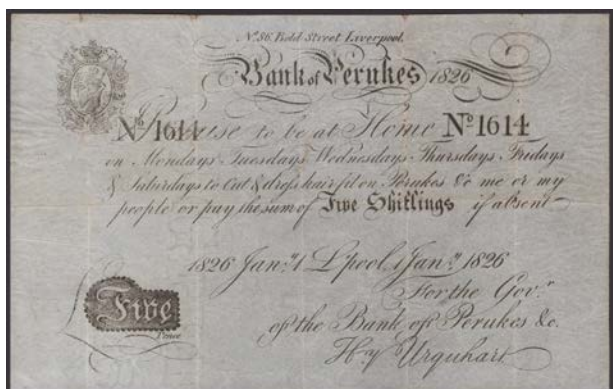 No. 56, Bold Street Liverpool.
Bank of Perukes 1826
No 1614 I Promise to be at Home No 1614
on Mondays Tuesdays Wednesdays Thursdays Fridays
& Saturdays to Cut & dress hair fit on Perukes &c me or my
people or pay the sum of Five Shillings if absent
1826 Jany. 1 L'pool. 1 Jany. 1826
For the Govr.
of the Bank of Perukes &c.
Five
Pence
Hy Urquhart